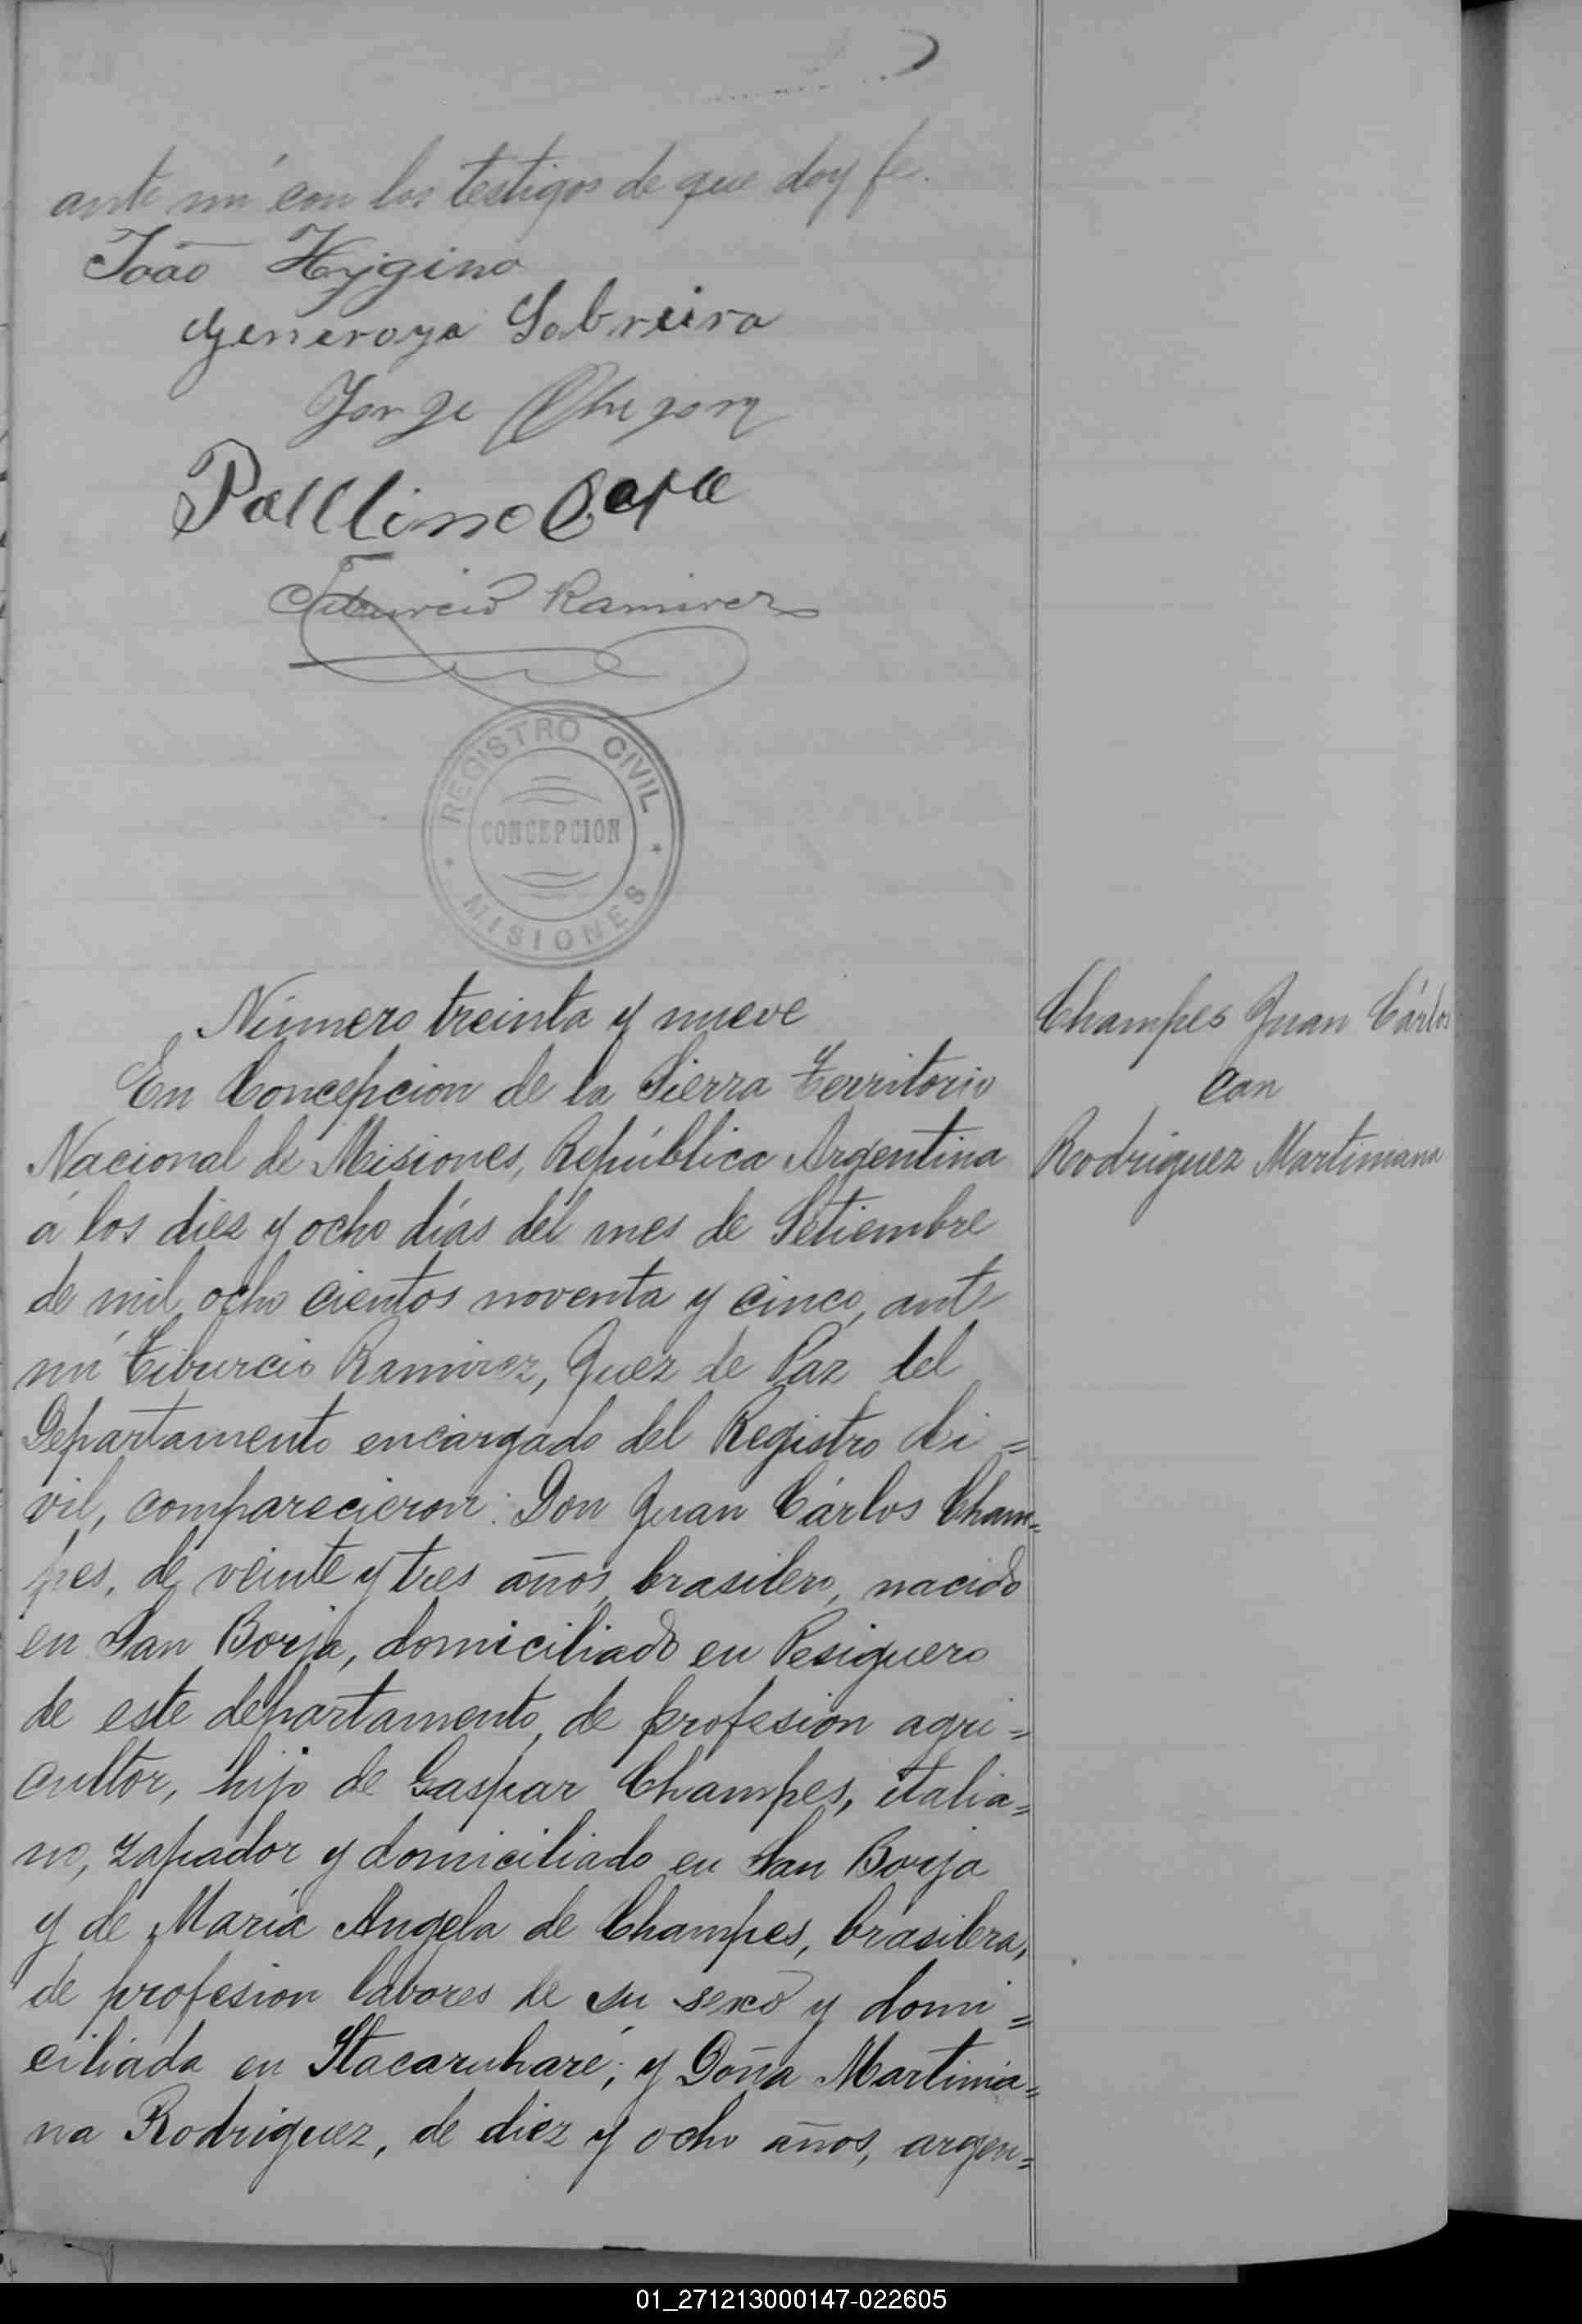 ante mí con los testigos de que doy fe.
João Hygino
Generoza Sobreira
Jorge
Tiburcio Ramirez
REGISTRO CIVIL
CONCEPCION
MISIONES
Número treinta y nueve
En Concepcion de la Sierra Territorio
Nacional de Misiones, República Argentina
á los diez y ocho días del mes de Setiembre
de mil ocho cientos noventa y cinco, ante
mí Tiburcio Ramirez, Juez de Paz del
Departamento encargado del Registro Ci=
vil, comparecieron: Don Juan Cárlos Cham=
pes, de veinte y tres años, brasilero, nacido
en San Borja, domiciliado en Pesiguero
de este departamento, de profesion agri=
cultor, hijo de Gaspar Champes, italia=
no, zapador y domiciliado en San Borja
y de María Angela de Champes, brasilera,
de profesion labores de su sexo y domi=
ciliada en Itacaruharé; y Doña Martimia=
na Rodriguez, de diez y ocho años, argen=
Champes Juan Cárlos
con
Rodriguez Martimiana
01_271213000147-022605